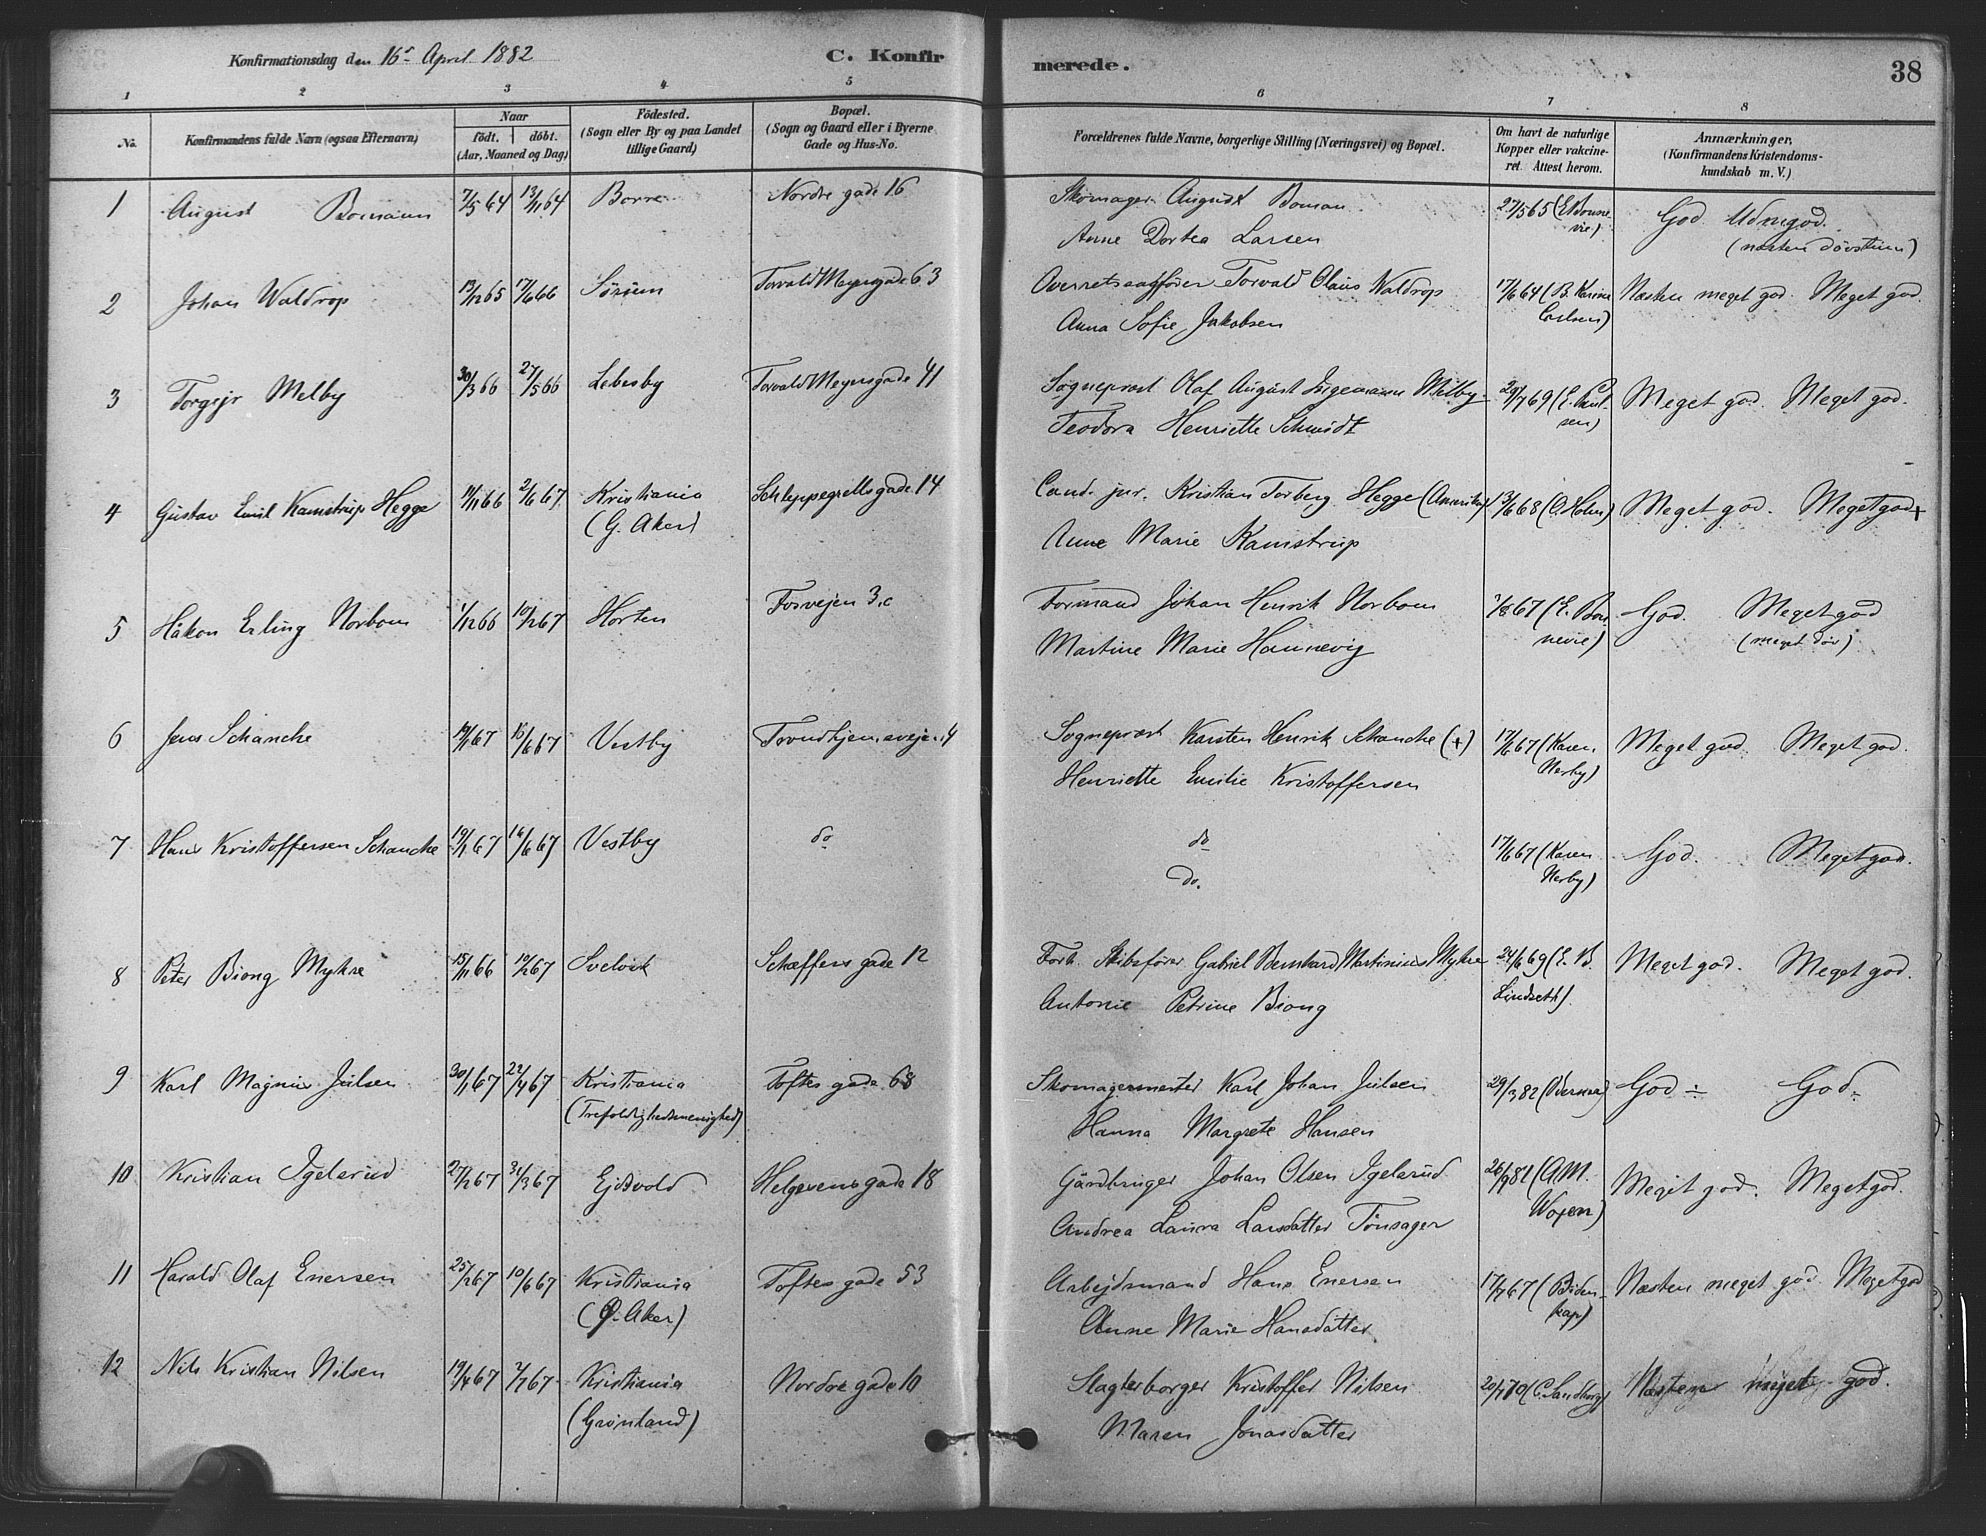 Konfirmationsdag den 16de April 1882
C. Konfirmerede.
38
1 2 3 4 5 6 7 8
No.
Konfirmandens fulde Navn (ogsaa Efternavn)
Naar
födt. döbt.
(Aar, Maaned og Dag)
Födested.
(Sogn eller By og paa Landet
tillige Gaard)
Bopæl.
(Sogn og Gaard eller i Byerne
Gade og Hus-No.
Forældrenes fulde Navne, borgerlige Stilling (Næringsvei) og Bopæl.
Om havt de naturlige
Kopper eller vakcine-
ret. Attest herom.
Anmærkninger,
(Konfirmandens Kristendoms-
kundskab m. V.)
1 August Bomann 7/5 64 13/11 64 Borre Nordre gade 16 Skomager August Boman 27/5 65 God Udmgod.
Anne Dortea Larsen (næsten døvstum)
2 Johan Waldrop 13/12 65 17/6 66 Sørum Torvald Meyersgade 63 Overretssagfører Torvald Olaus Waldrop 17/6 64 (B. Karine Næsten meget god. Meget god.
Anna Sofie Jakobsen Carlsen)
3 Torgejr Melby 30/3 66 27/5 66 Lebesby Torvald Meyersgade 41 Sognepræst Olaf August Ingemann Melby 29/7 69 (E. Paul- Meget god. Meget god.
Teodora Henriette Schmidt sen)
4 Gustav Emil Kamstrup Hegge 11/11 66 2/6 67 Kristiania Schleppegrellsgade 14 Cand. jur. Kristian Torberg Hegge (Amerika) 13/6 68 (O. Holm) Meget god. Meget god +
(G. Aker) Anne Marie Kamstrup
5 Håkon Erling Norbom 1/12 66 10/2 67 Horten Fosvejen 3,c Formand Johan Henrik Norbom 1/8 67 (E. Bon- God. Meget god
Martine Marie Hannevig nevie) (meget døv)
6 Jens Schanche 19/1 67 16/6 67 Vestby Trondhjemsvejen 4 Sogneprest Karsten Henrik Schanche (+) 17/6 67 (Karen Meget god. Meget god.
Henriette Emilie Kristoffersen Nerby)
7 Hans Kristoffersen Schanche 19/1 67 16/6 67 Vestby do do 17/6 67 (Karen God. Meget god.
do. Nerby)
8 Peter Biong Mykre 15/11 66 10/2 67 Svelvik Schæffers gade 12 Forh. Skibsfører Gabriel Bernhard Martinius Mykre 24/6 69 (E. B. Meget god. Meget god.
Antonie Petrine Biong Lindseth).
9 Karl Magnus Julsen 30/1 67 22/4 67 Kristiania Toftes gade 68 Skomagermester Karl Johan Julsen 29/3 82 God ÷ God ÷
(Trefoldighedsmenighed) Hanna Margrete Hansen
10 Kristian Igelsrud 27/2 67 31/3 67 Ejdsvold Helgesens gade 18 Gårdbruger Johan Olsen Igelsrud 26/9 81 (A.M. Meget god. Meget god.
Andrea Laura Larsdatter Tønsager
11 Harald Olaf Enersen 25/2 67 10/6 67 Kristiania Toftes gade 53 Arbejdsmand Hans Enersen 17/7 67 (Biden- Næsten meget god. Meget god
(G. Aker) Anne Marie Hansdatter kap)
12 Nils Kristian Nilsen 19/4 67 7/7 67 Kristiania Nordre gade 10 Slagterborger Kristoffer Nilsen 20/7 70 (C. Sandborg) Næsten meget god.
(Grønland) Maren Jonasdatter